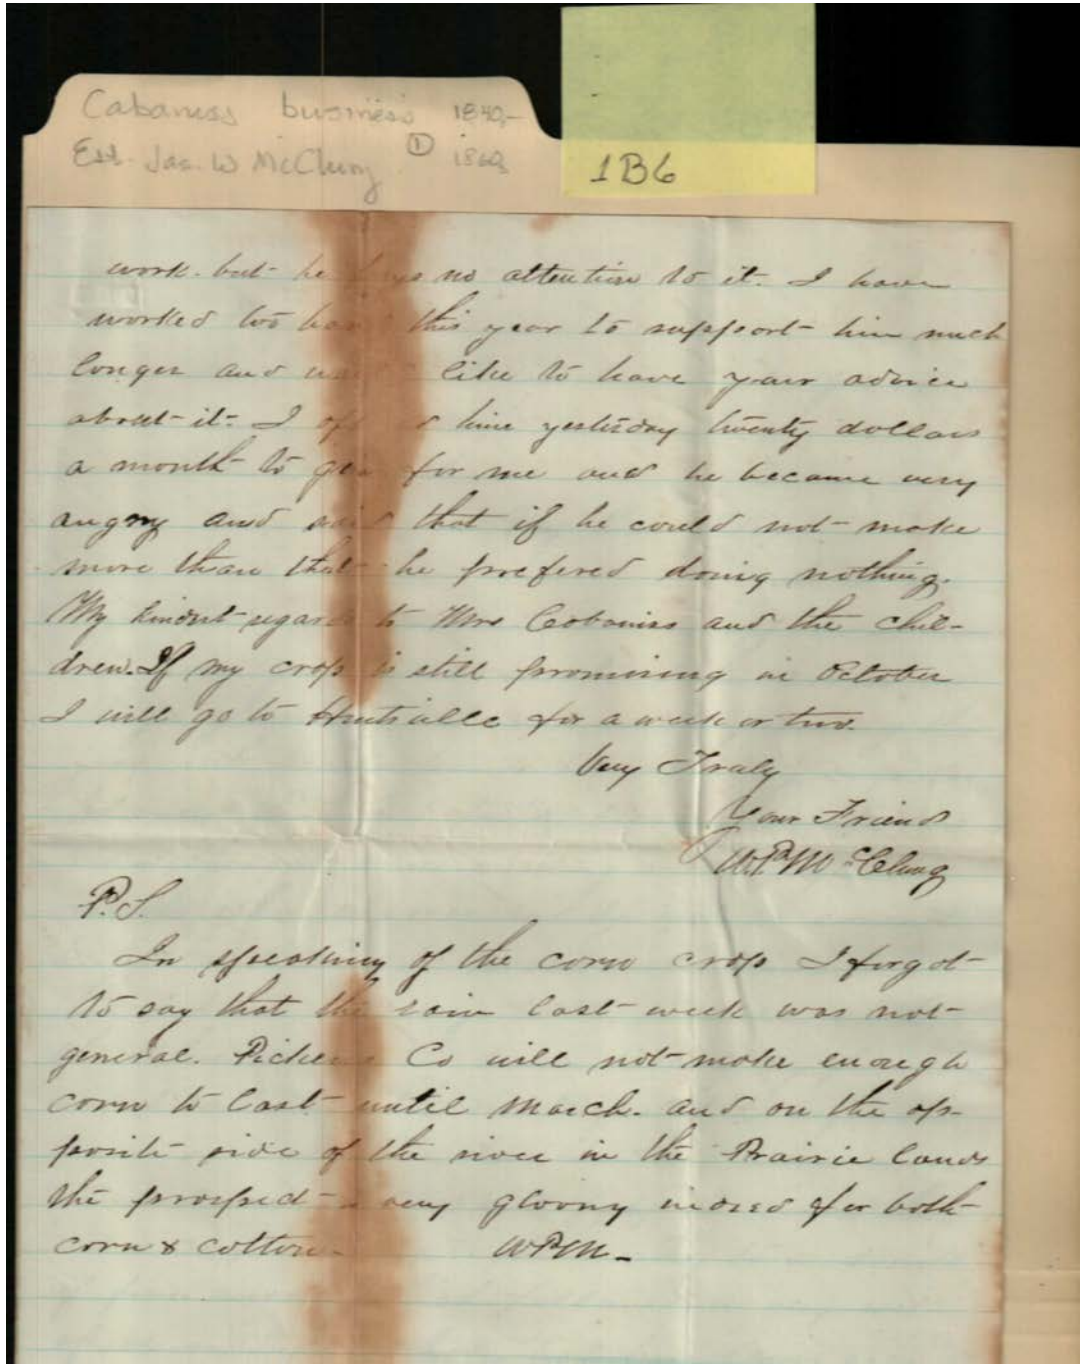 Cabaniss business 1840,-
Est. Jas. W McClung ① 1860
1B6
work. but he no attention to it. I have
worked too hard this year to support him much
longer and would like to have your advice
about it. I offered him yesterday twenty dollars
a month to gin for me and he became very
angry and said that if he could not make
more than that he prefered doing nothing.
My kindest regards to Mrs Cabaniss and the chil-
dren. If my crop is still promising in October
I will go to Huntsville for a week or two.
Very Truly
Your Friend
W.P. McClung
P.S.
In speaking of the corn crop I forgot
to say that the rain last week was not
general. Pickens Co will not make enough
corn to last until March. and on the op-
posite side of the river in the Prairie lands
the prospect is very gloomy indeed for both
corn & cotton. WPM_